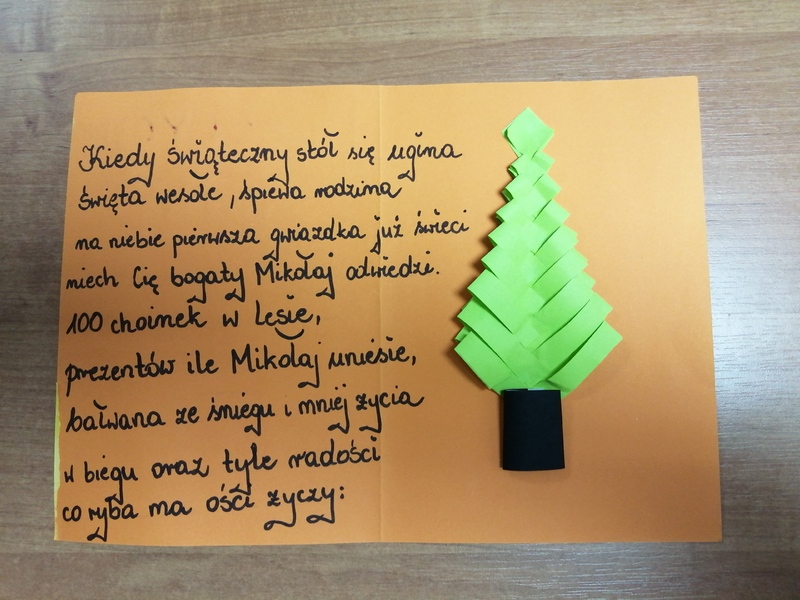 Kiedy świąteczny stół się ugina
święta wesołe, śpiewa rodzina
na niebie pierwsza gwiazdka już świeci
niech Cię bogaty Mikołaj odwiedzi.
100 choinek w lesie,
prezentów ile Mikołaj uniesie,
bałwana ze śniegu i mniej życia
w biegu oraz tyle radości
co ryba ma ości życzy: